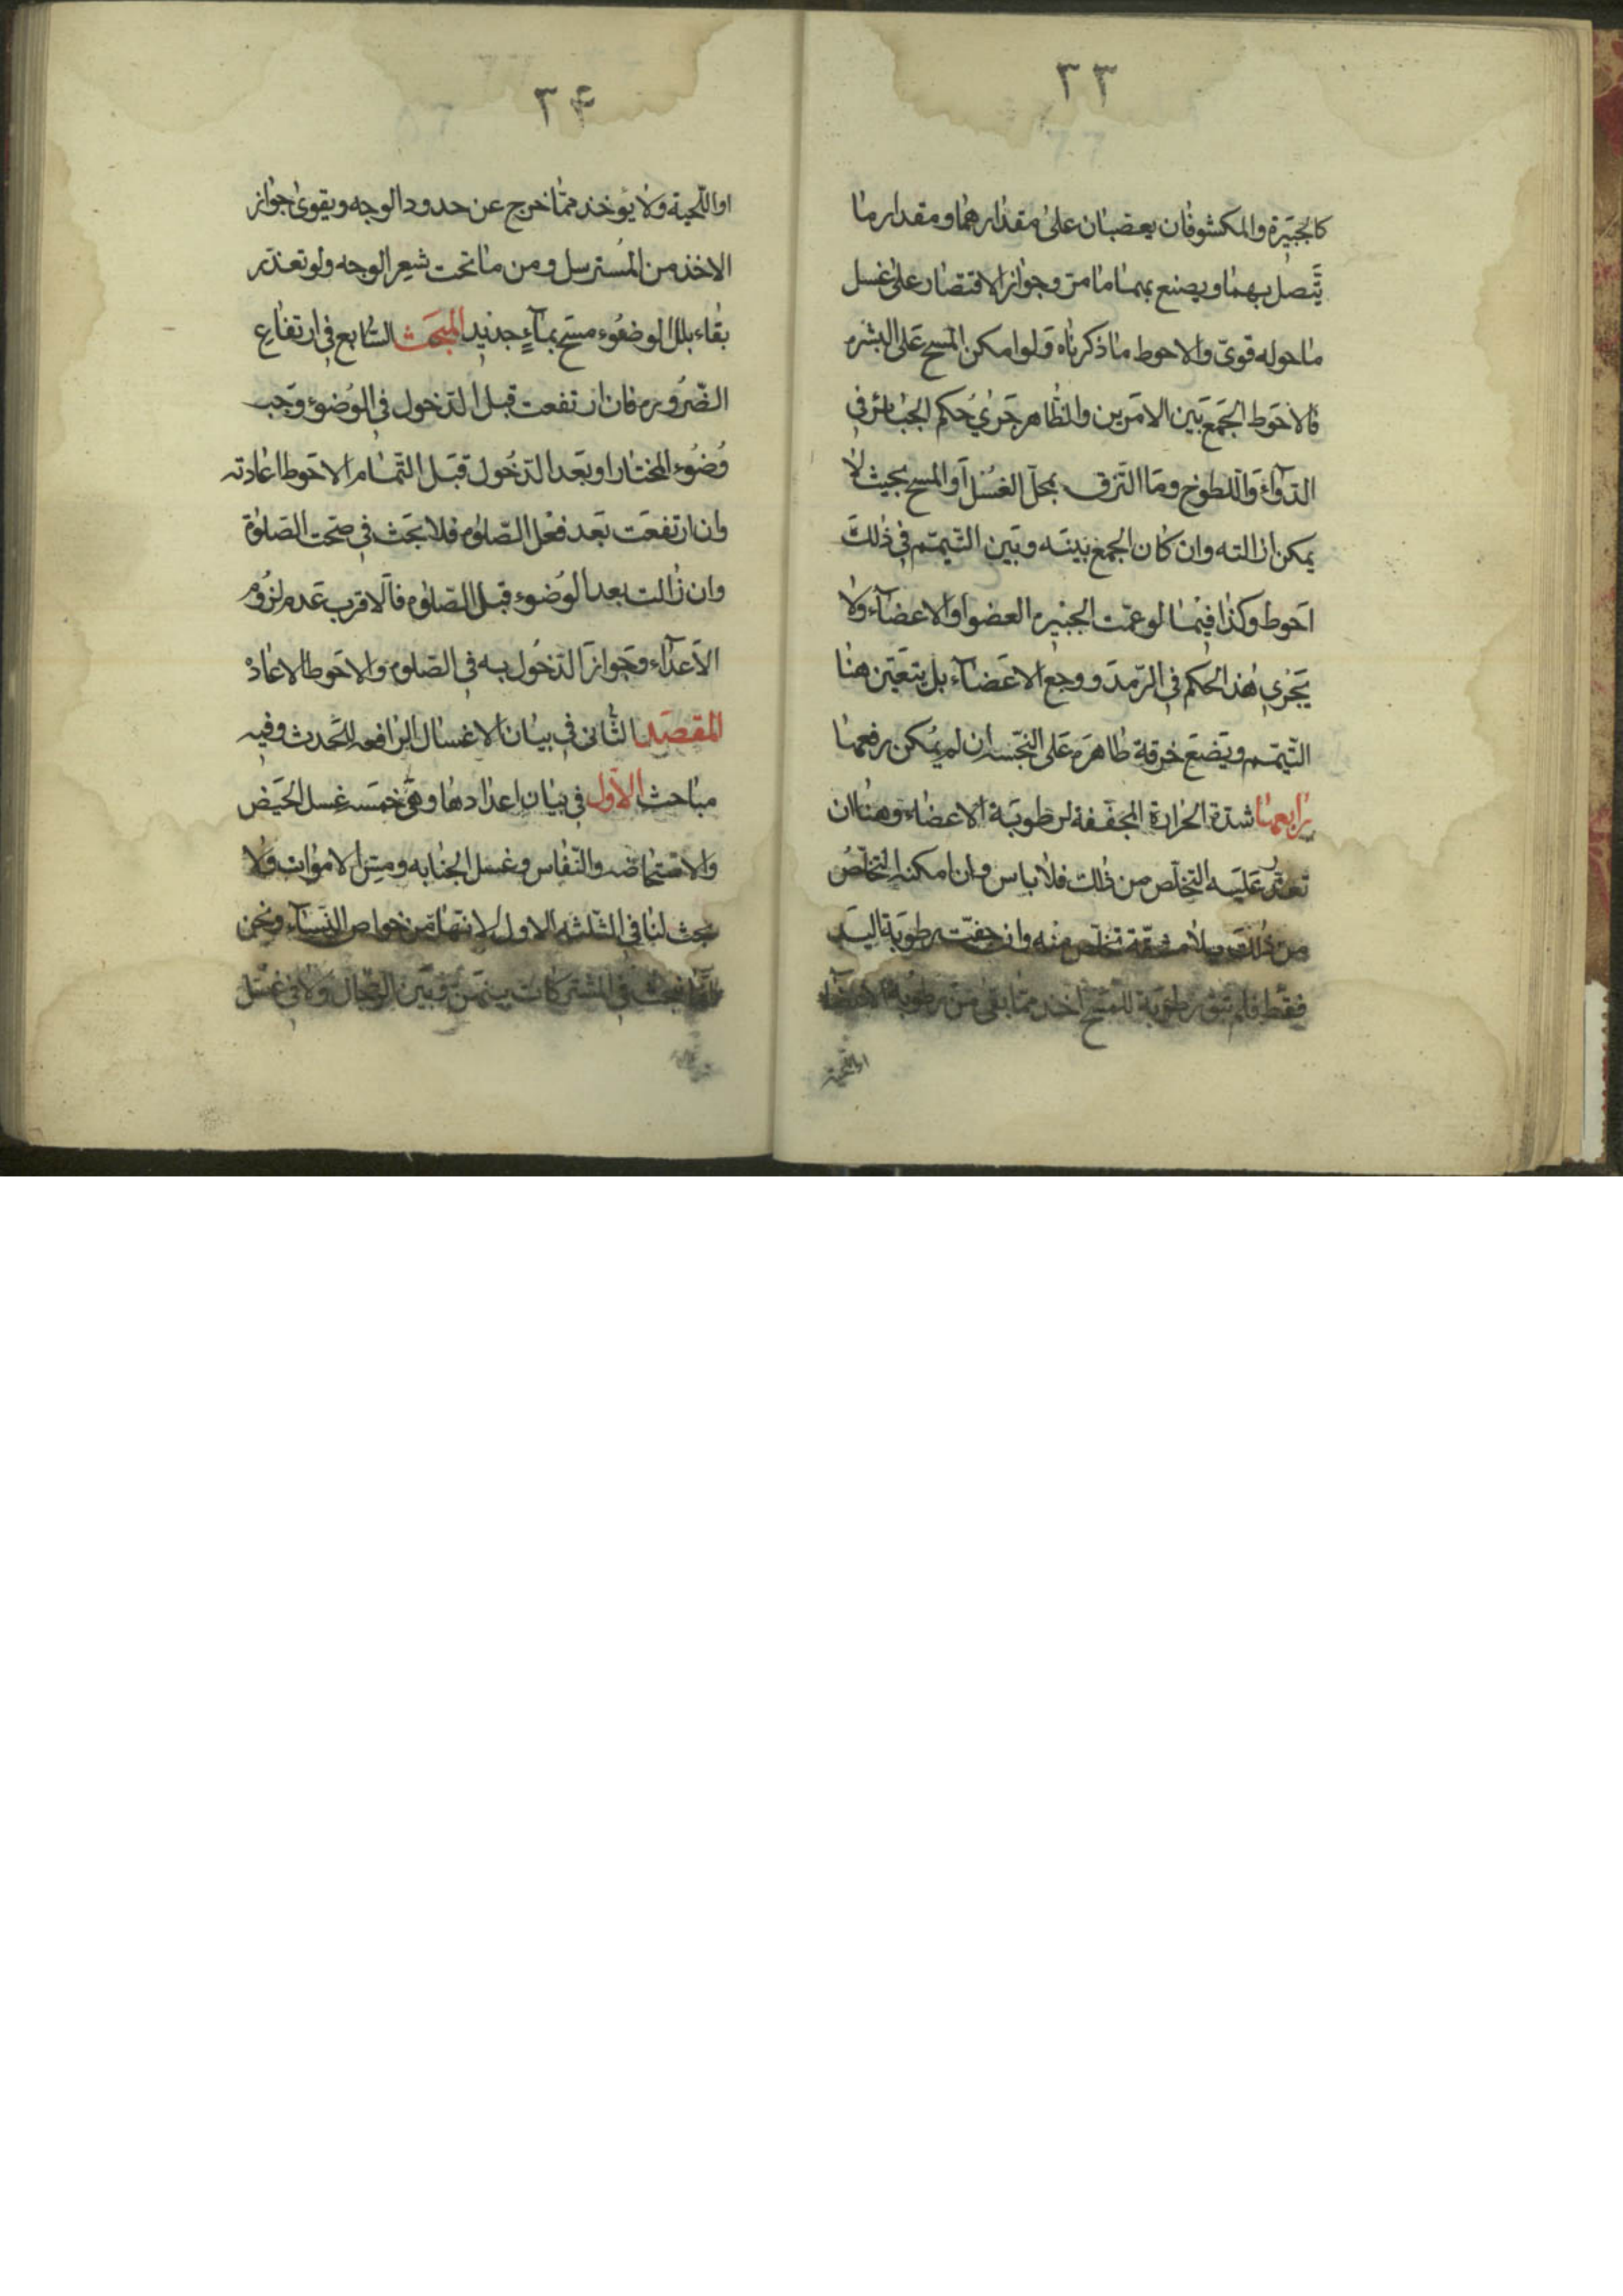 ٣٣
كالجبيرة والمكشوفان يعصبان على مقدارهما ومقدار ما
يتّصل بهما ويصنع بهما ما مرّ وجواز الاقتصار على غسل
ما حوله قوىّ والاحوط ما ذكرناه ولو امكن المسح على البشره
فالاحوط الجمع بين الامرين والظاهر جرى حكم الجبائر في
الدواء واللطوخ وما التزق بمحلّ الغسل أو المسح بحيث لا
يمكن ازالته وان كان الجمع بينه وبين التيمّم في ذلك
احوط وكذا فيما لو عمّت الجبيره العضو او الاعضاء ولا
يجرى هذا الحكم في الرّمد ووجع الاعضاء بل يتعيّن هنا
التيمّم ويضع خرقة طاهره على النجسه ان لم يمكن رفعها
رابعها شدّة الحرارة المجفّفة لرطوبة الاعضاء وهنا ان
تعذّر عليه التخلّص من ذلك فلا باس وان امكنه التخلّص
من ذلك وبلا مشقّة تخلّص منه وان جفّت رطوبة اليد
فقط فلم تبق رطوبة للمسح اخذ ممّا بقى من رطوبة الاعضاء
او اللّحية
٣۴
او اللّحية ولا يؤخذ ممّا خرج عن حدود الوجه ويقوى جواز
الاخذ من المسترسل ومن ما تحت شعر الوجه ولو تعذّر
بقاء بلل الوضوء مسح بماء جديد المبحث السّابع في ارتفاع
الضّروره فان ارتفعت قبل الدّخول في الوضوء وجب
وضوء المختار او بعد الدّخول قبل التّمام الاحوط اعادته
وان ارتفعت بعد فعل الصّلوه فلا بحث في صحّت الصّلوة
وان زالت بعد الوضوء قبل الصّلوه فالاقرب عدم لزوم
الاعداء وجواز الدّخول به في الصّلوه والاحوط الاعاده
المقصد الثّانى في بيان الاغسال الرّافعه للحدث وفيه
مباحث الاوّل في بيان اعدادها وهى خمسه غسل الحيض
والاستحاضه والنّفاس وغسل الجنابه ومسّ الاموات ولا
بحث لنا في الثّلثه الاول لانّها من خواص النّساء ونحن
انّما نبحث في المشتركات بينهنّ وبين الرّجال ولا في غسل